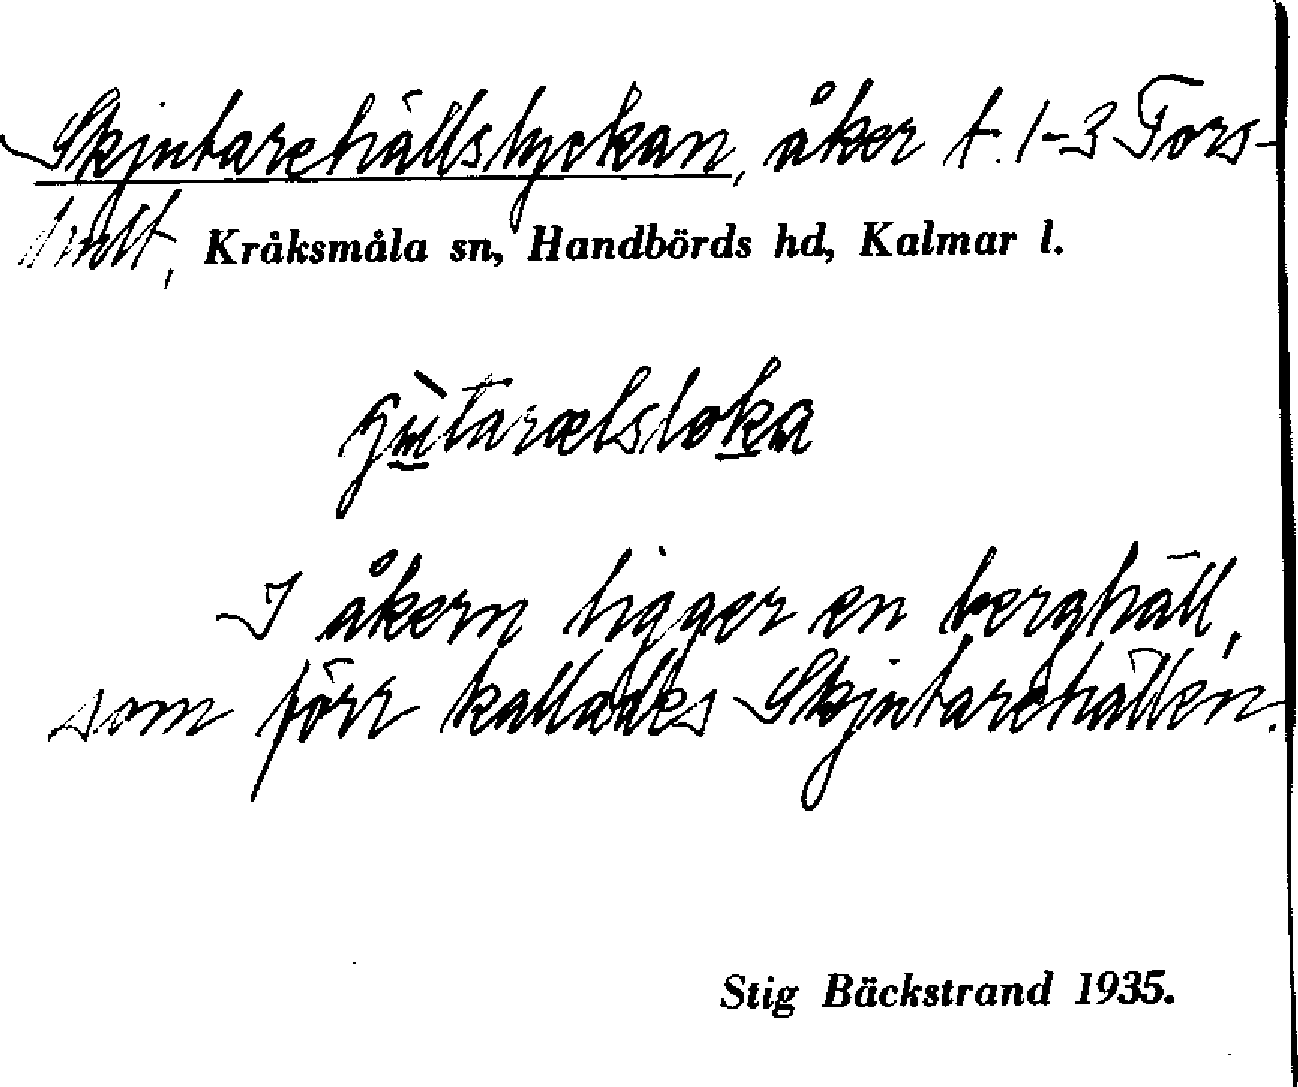 Skjutarehällslyckan, åker t. 1-3 Fors-
hult, Kråksmåla sn, Handbörds hd, Kalmar l.
I åkern ligger en berghäll,
som förr kallades Skjutarehällen.
Stig Bäckstrand 1935.